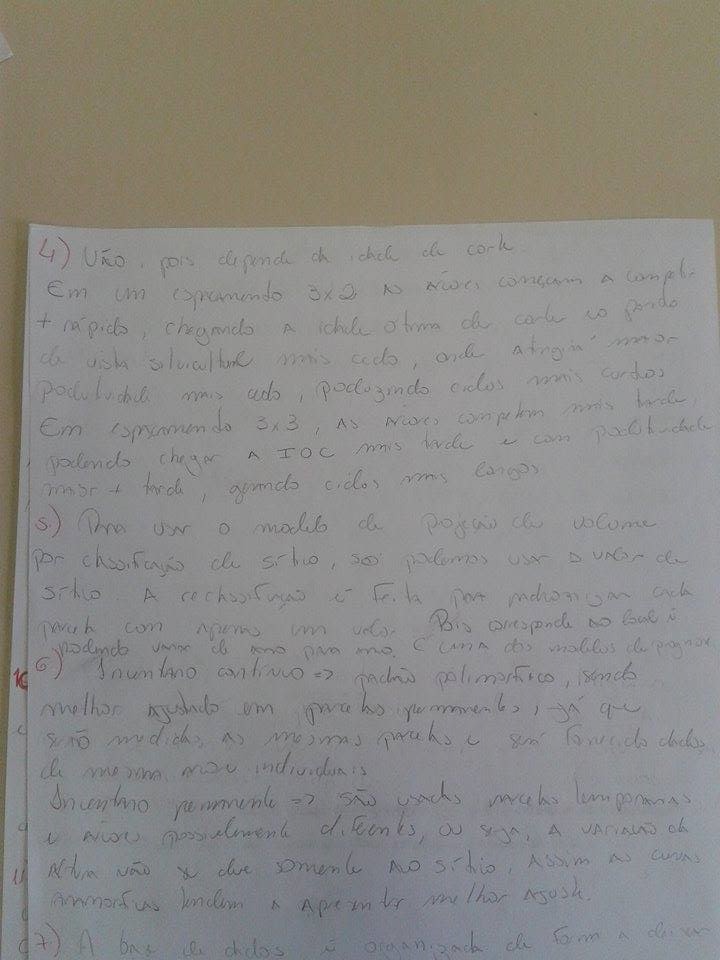 4) Não, pois depende da idade de corte.
Em um espaçamento 3x2 as árvores começam a competir
+ rápido, chegando a idade ótima de corte no ponto
de vista silvicultural mais cedo, onde atingirá maior
produtividade mais cedo, produzindo ciclos mais curtos
Em espaçamento 3x3, as árvores competem mais tarde,
podendo chegar a IOC mais tarde e com produtividade
maior + tarde, gerando ciclos mais longos
5.) Para usar o modelo de projeção de volume
por classificação de sítio, só podemos usar o valor de
sítio. A reclassificação é feita para padronizar cada
parcela com apenas um valor. Pois corresponde ao local e
podendo variar de ano para ano. É uma dos modelos de
6) Inventário contínuo => padrão polimórfico, sendo
melhor ajustado em parcelas permanentes, já que
serão medidas as mesmas parcelas e será fornecido dados
de mesma individuais
Inventário permanente => são usadas parcelas temporárias
e árvores possivelmente diferentes, ou seja, a variação da
altura não se deve somente ao sítio, assim as curvas
anamórficas tendem a apresentar melhor ajuste.
7.) A base de dados é organizada de forma a deixar